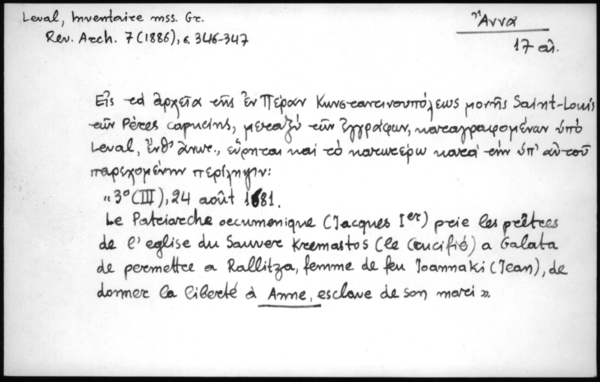 Leval, Inventaire mss. Gr.
Rev. Arch. 7 (1886), σ. 346-347
Ἄννα
17 αἰ.
Εἰς τὰ ἀρχεῖα τῆς ἐν Πέραν Κωνσταντινουπόλεως μονῆς Saint-Louis
τῶν Pères capucins, μεταξὺ τῶν ἐγγράφων, καταγραφομένων ὑπὸ
Leval, ἔνθ' ἀνωτ., εὕρηται καὶ τὸ κατωτέρω κατὰ τὴν ὑπ' αὐτοῦ
παρεχομένην περίληψιν:
"3º (III), 24 août 1681.
Le Patriarche oecumenique (Jacques Ier) prie les prêtres
de l'eglise du Sauver Kremastos (le Crucifié) a Galata
de permettre a Rallitza, femme de feu Ioannaki (Jean), de
donner la liberté à Anne, esclave de son mari".